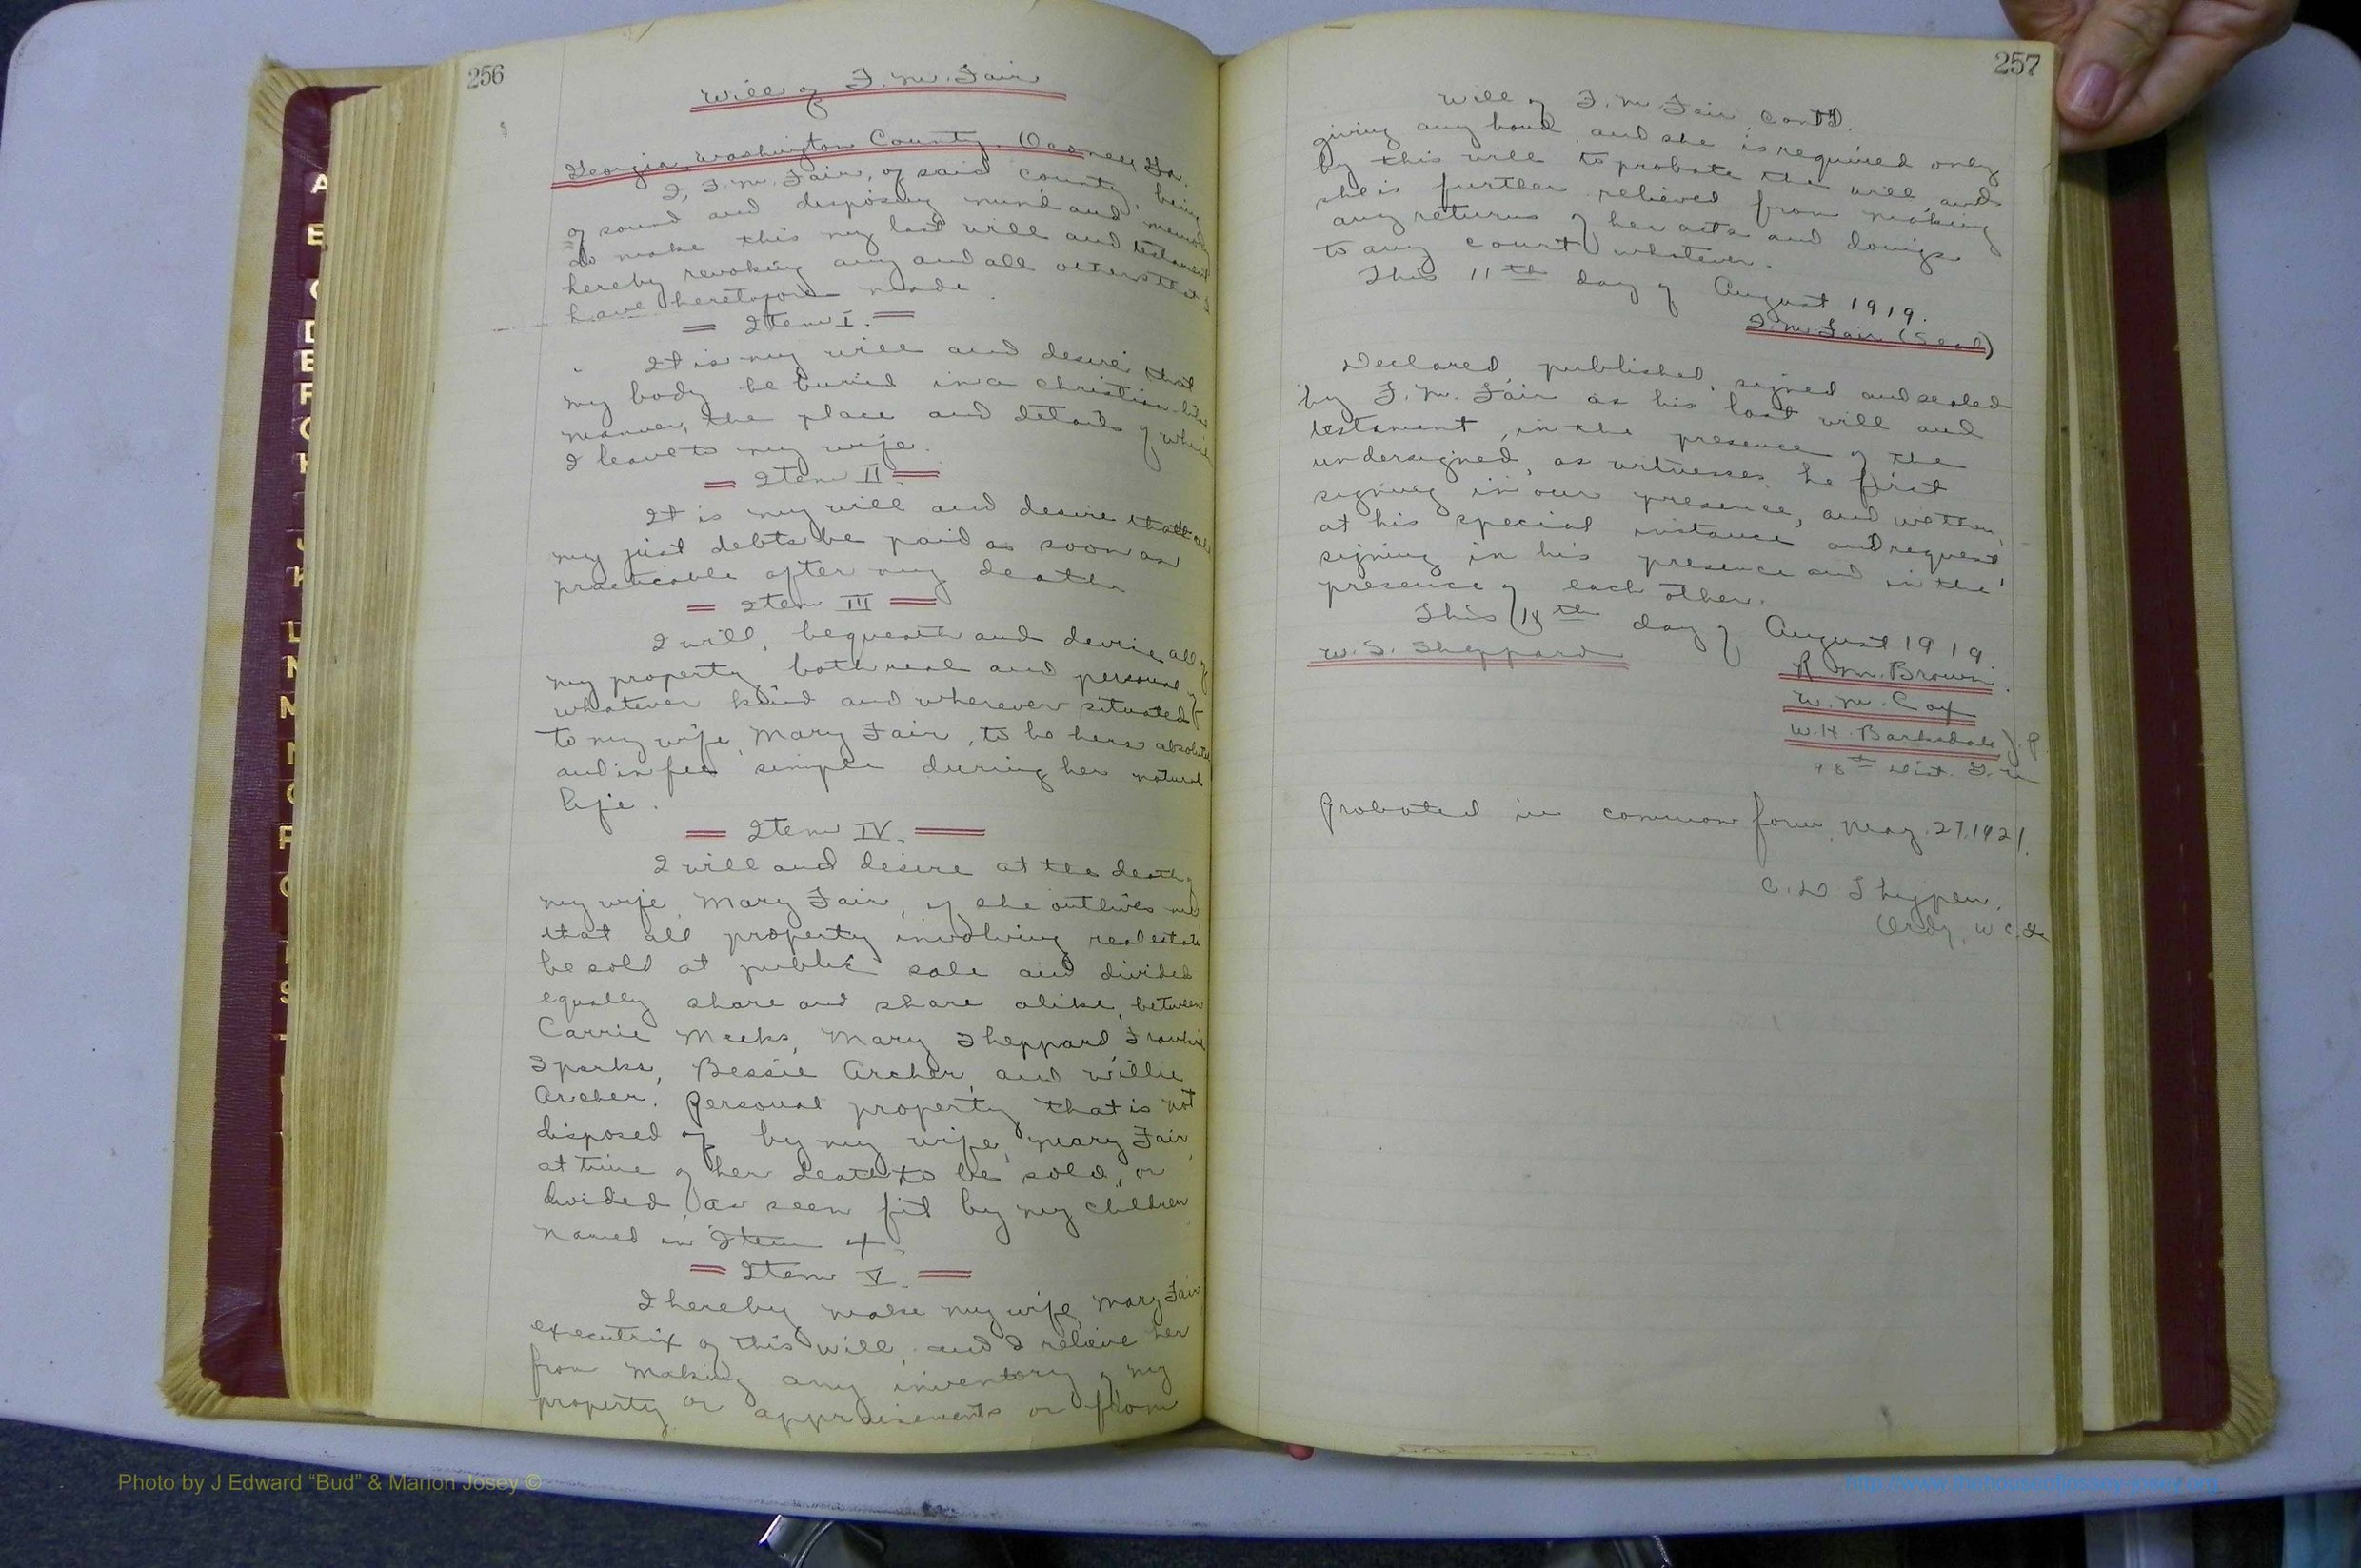 256
Will of F. M. Fair
Georgia, Washington County. Oconee, Ga.
I, F. M. Fair, of said county, being
of sound and disposing mind and memory
do make this my last will and testament
hereby revoking any and all others that I
have heretofore made.
Item I.
It is my will and desire that
my body be buried in a christian-like
manner, the place and details of which
I leave to my wife.
Item II.
It is my will and desire that all
my just debts be paid as soon as
practicable after my death
Item III
I will, bequeath and devise all of
my property both real and personal of
whatever kind and wherever situated
to my wife, Mary Fair, to be hers absolutely
and in fee simple during her natural
life.
Item IV.
I will and desire at the death of
my wife, Mary Fair, if she outlives me
that all property involving real estate
be sold at public sale and divided
equally share and share alike, between
Carrie Meeks, Mary Sheppard, Frankie
Sparks, Bessie Archer, and Willie
Archer. Personal property that is not
disposed of by my wife, Mary Fair,
at time of her death to be sold, or
divided, as seen fit by my children
named in Item 4.
Item V.
I hereby make my wife, Mary Fair
executrix of this will, and I relieve her
from making any inventory of my
property or appraisements or from
257
Will of F. M. Fair Cont'd.
giving any bond, and she is required only
by this will to probate the will, and
she is further relieved from making
any returns of her acts and doings
to any court whatever.
This 11th day of August 1919.
F. M. Fair (Seal)
Declared, published, signed and sealed
by F. M. Fair as his last will and
testament, in the presence of the
undersigned, as witnesses, he first
signing in our presence, and we then,
at his special instance and request,
signing in his presence and in the
presence of each other.
This 18th day of August 1919.
W. S. Sheppard
R. M. Brown
W. M. Cox
W. H. Barksdale J. P.
98th Dist. G. M
Probated in common form May. 27, 1921.
C. D Thigpen,
Ordy, W C. Ga
Photo by J Edward “Bud” & Marion Josey ©
http://www.thehouseofjossey-josey.org